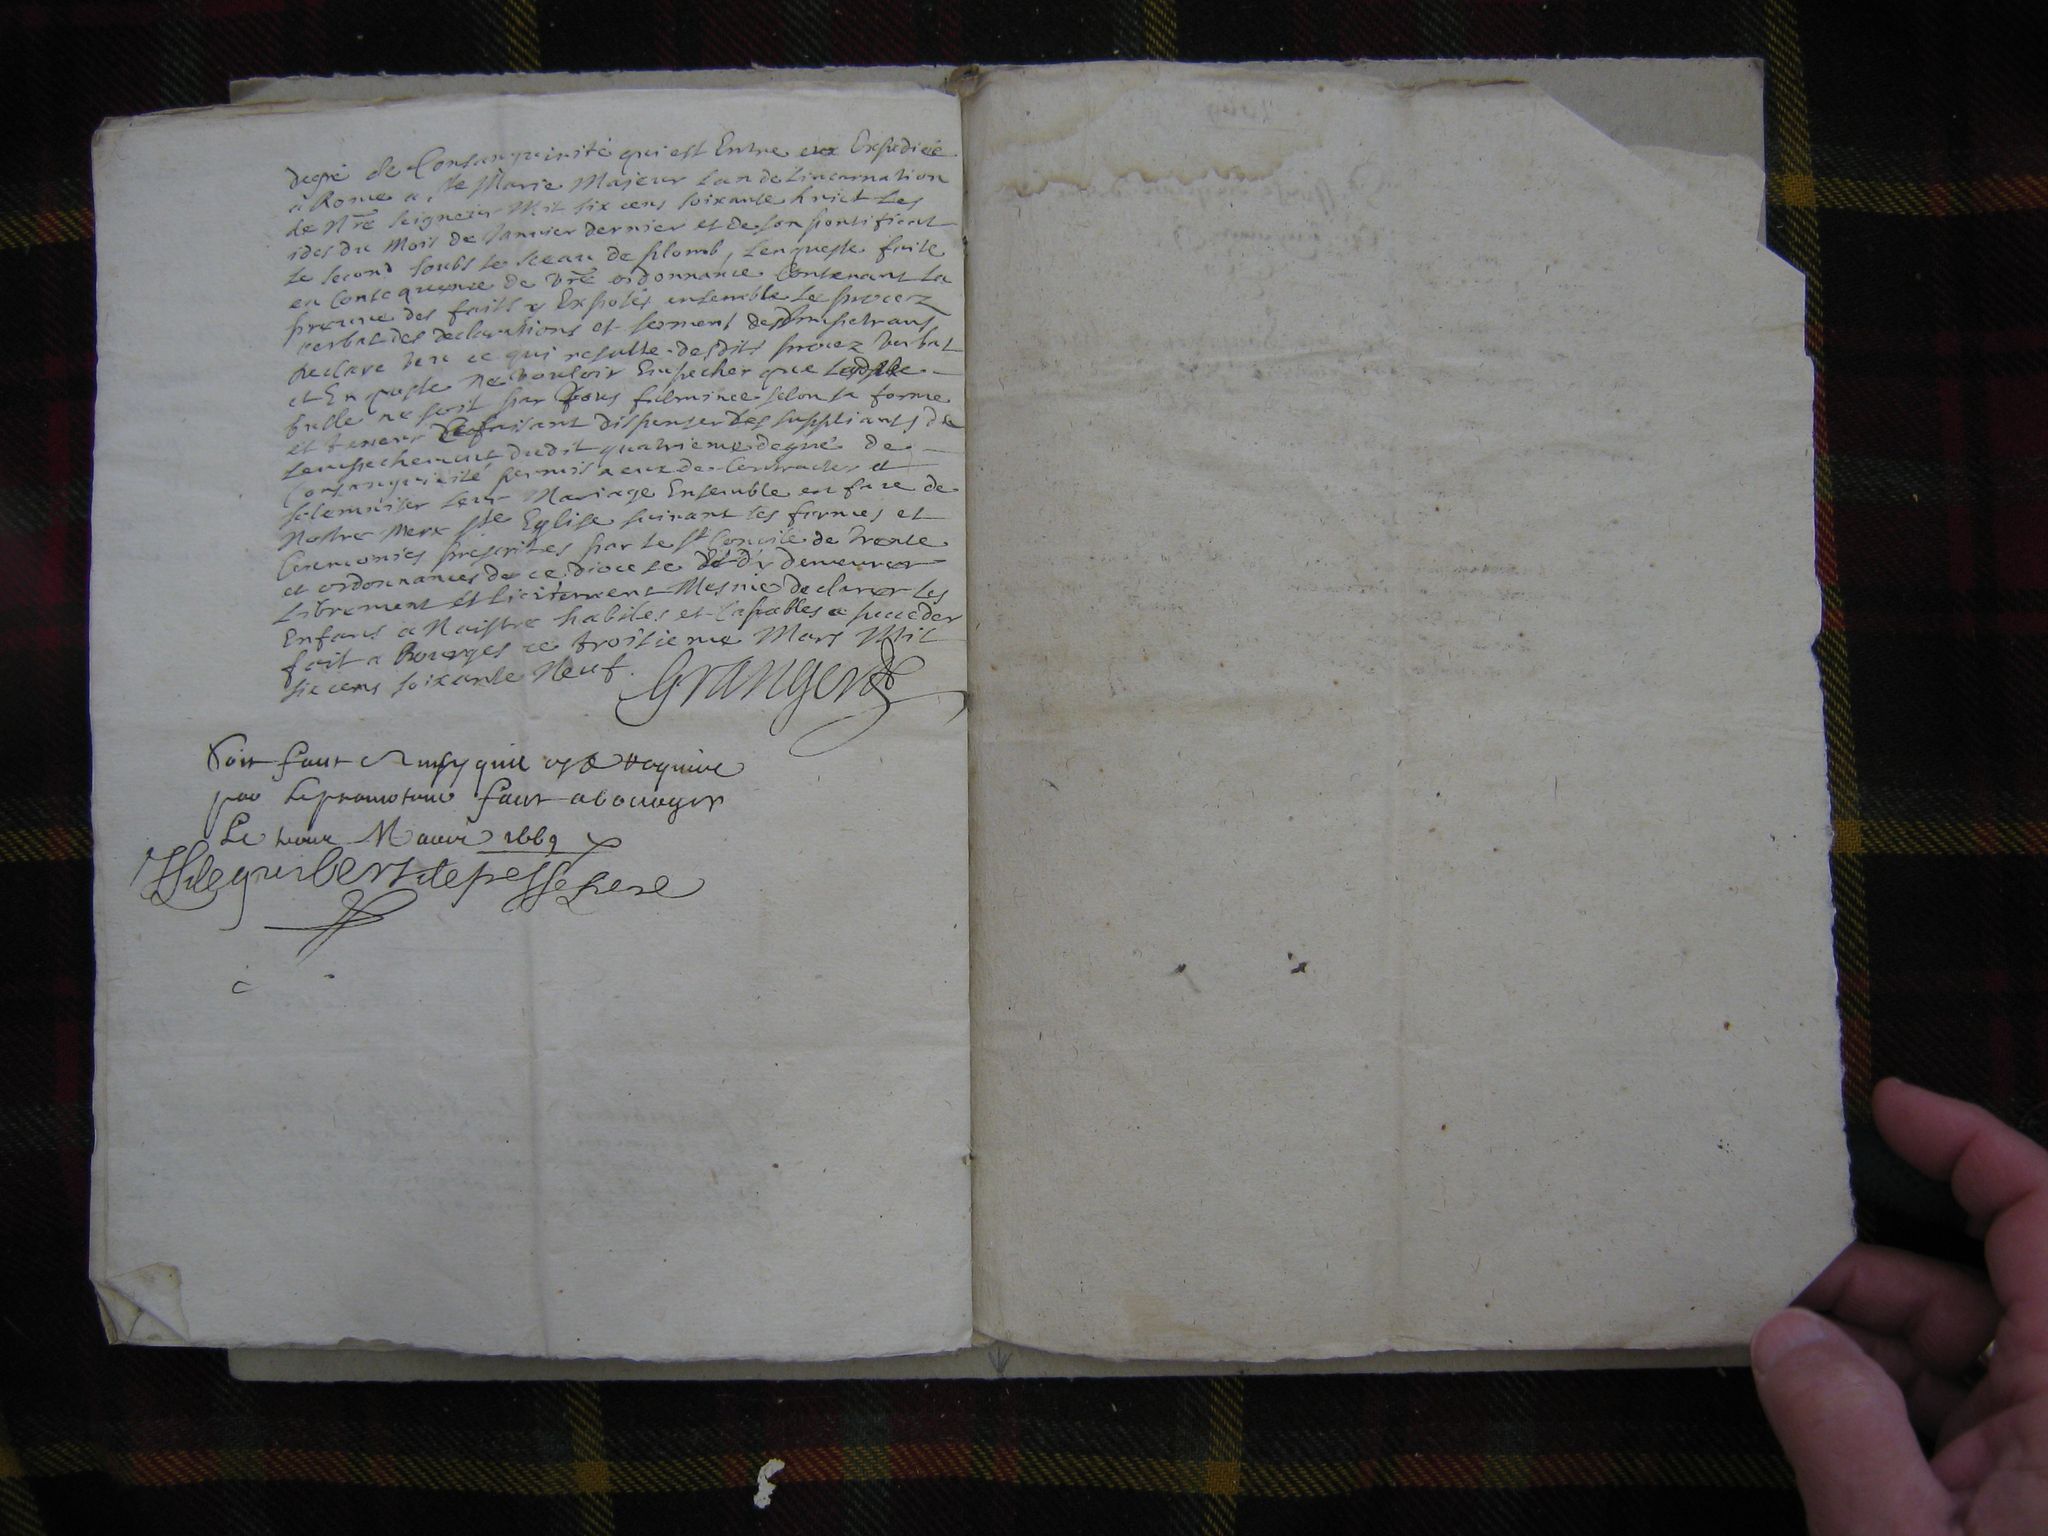 degré de Consanguinité qui est Entre eux Expediée
a Rome a Ste Marie Majeur Lan de Lincarnation
de Nre Seigneur Mil six cens soixante huict Les
ides du Mois de Janvier dernier et de son pontificat
Le second soubs Le sceau de plomb, Lenqueste faite
en Consequence de Vre ordonnance Contenant La
preuve des faits y Exposés ensemble Le procez
verbal des declarations et serment des Impetrans
declare veu ce qui resulte desdits procez verbal
et Enqueste ne vouloir Empecher que Ladite
bulle ne soit par vous fulminée selon sa forme
et teneur Ce faisant dispenser Les suppliants de
Lempechement dudit quatrieme degré de
Consanguinité permis a eux de Contracter et
solemniser Leur Mariage Ensemble en face de
Nostre Mere Ste Eglise suivant les formes et
Ceremonies prescrites par Le St Concile de Trente
et ordonnances de ce diocese et d'y demeurer
Librement et Licitement Mesme declarer Les
Enfans a Naistre habiles et Capables a succeder
fait a Bourges ce troisieme Mars Mil
six cens soixante Neuf.
Granger
Soit faict Ainsy quil est requis
par Le promoteur faict a bourges
Le trois Mars 1669